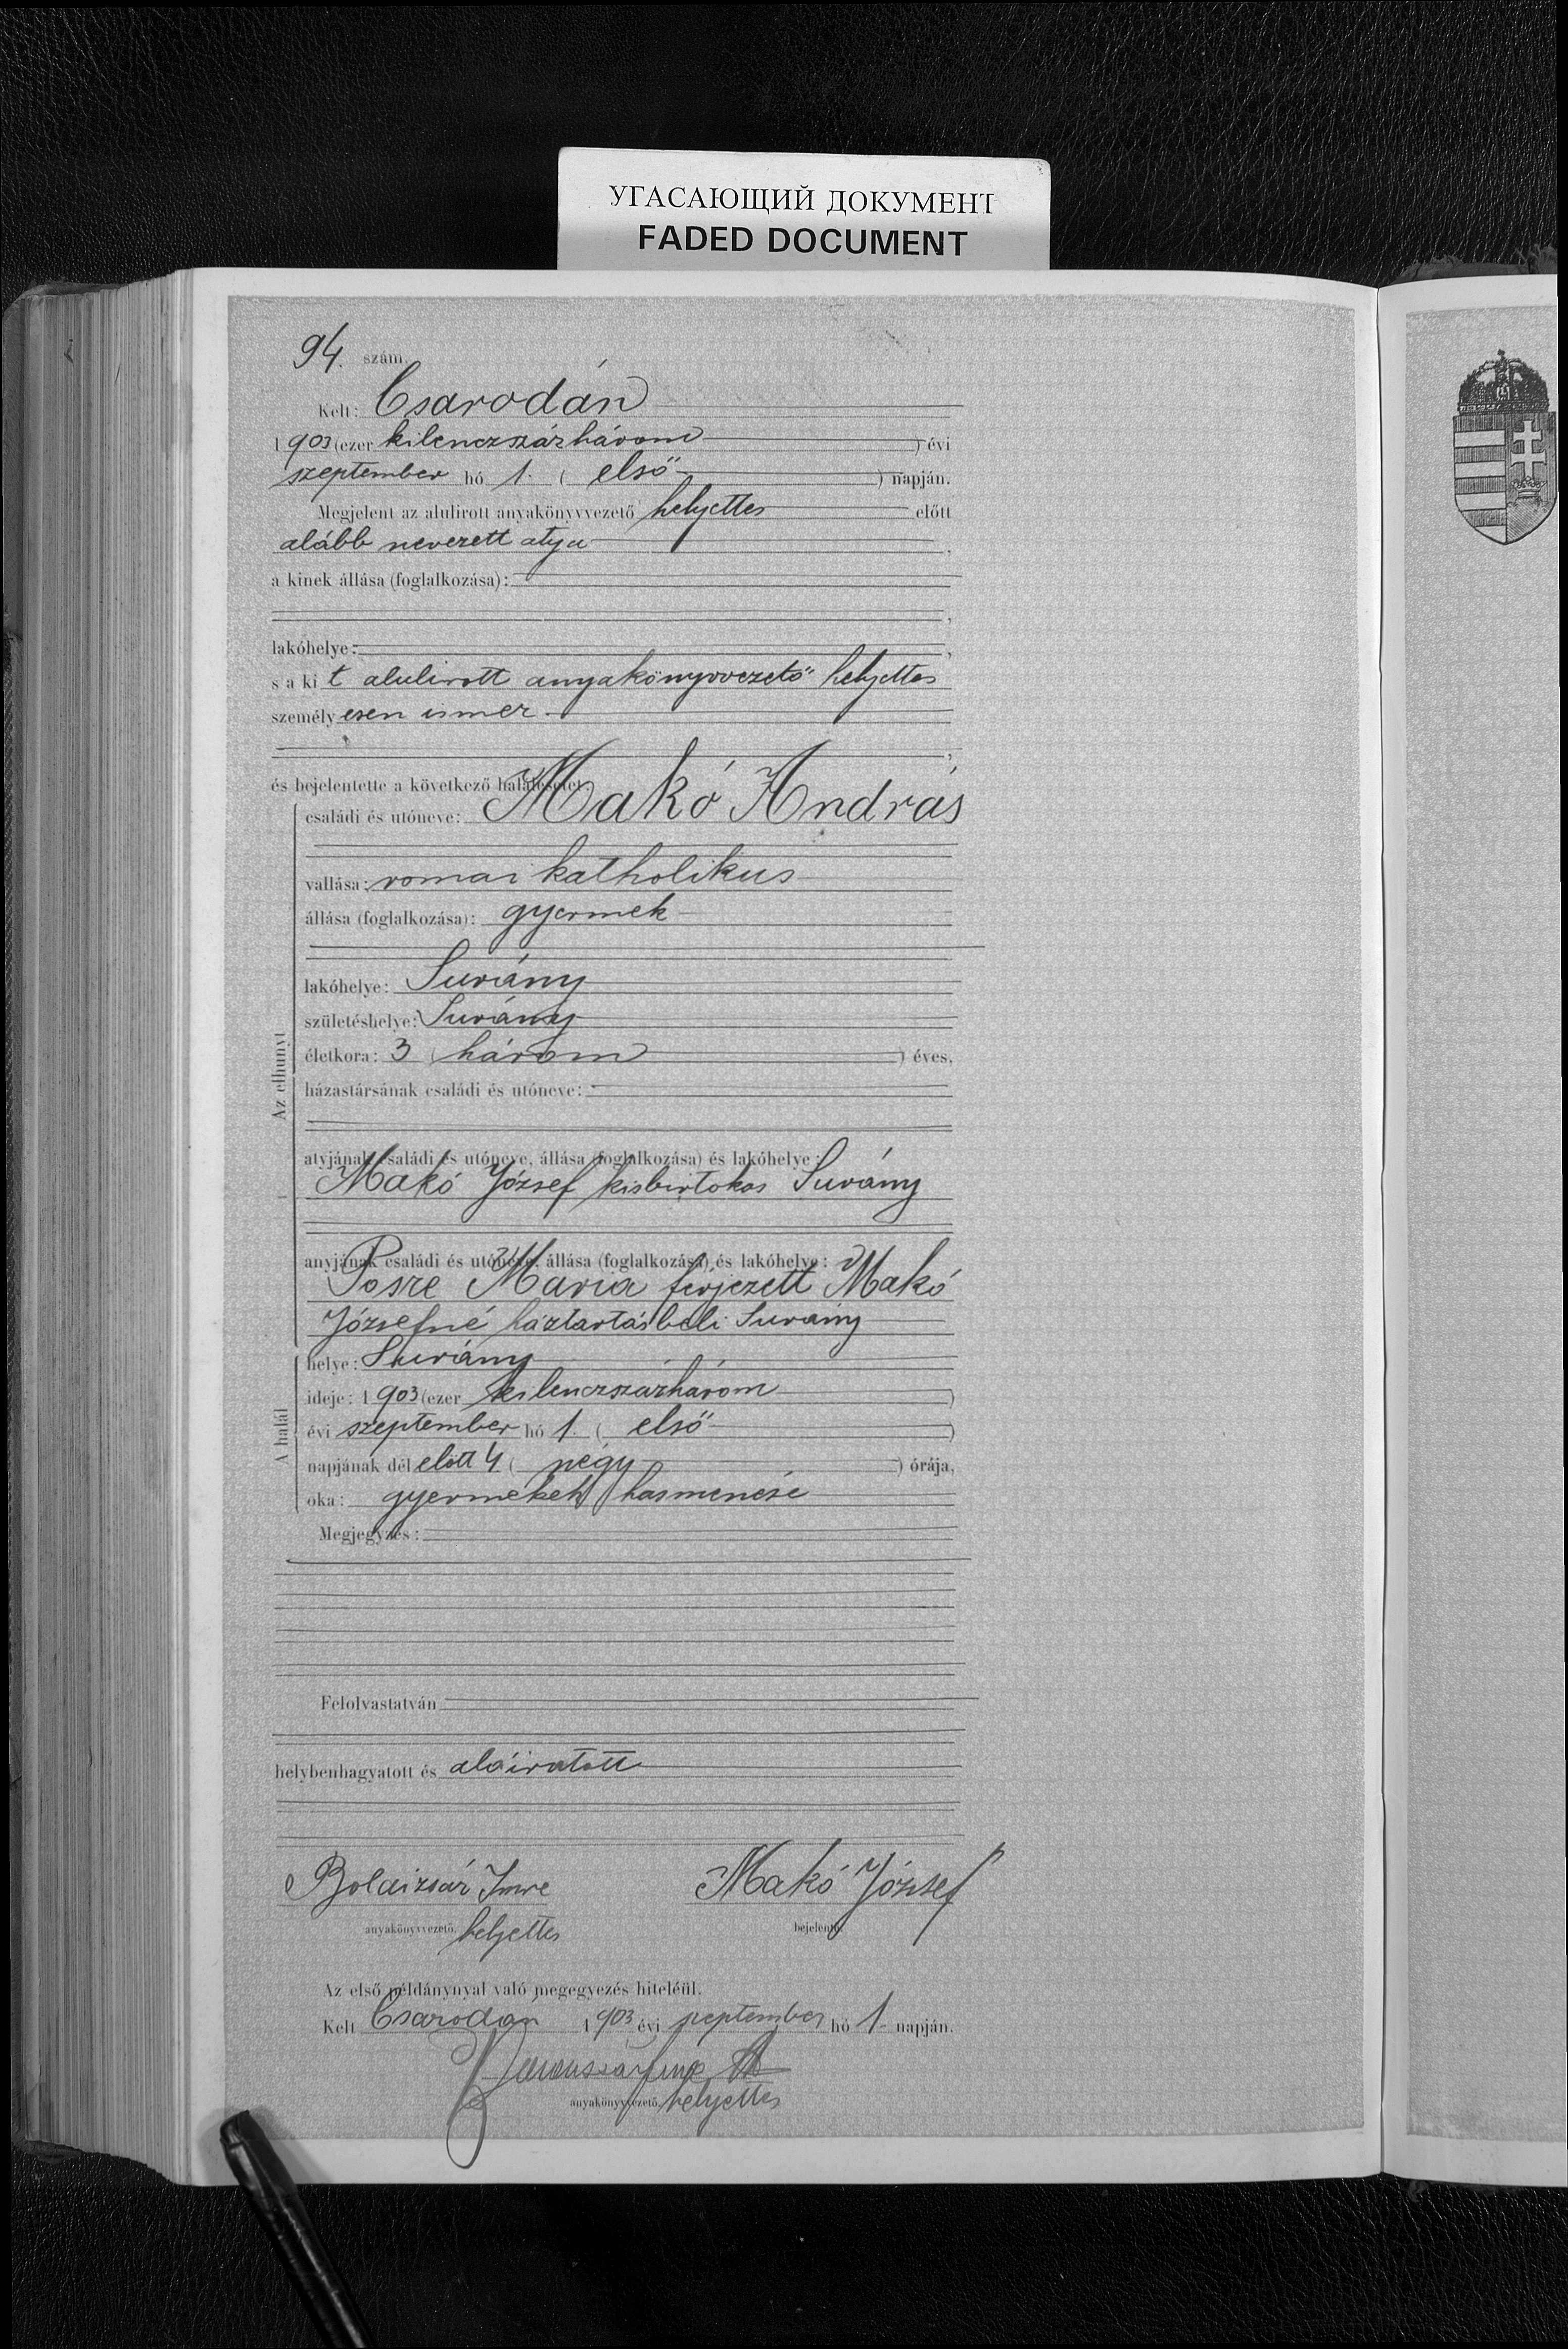 УГАСАЮЩИЙ ДОКУМЕНТ
FADED DOCUMENT
94. szám.
Kelt: Csarodán
1903 (ezer kilenczszázhárom ) évi
szeptember hó 1. ( első ) napján.
Megjelent az alulirott anyakönyvvezető helyettes előtt
alább nevezett atya ,
a kinek állása (foglalkozása):
,
lakóhelye: ,
s a ki t alulirott anyakönyvvezető helyettes
személy esen ismer
,
és bejelentette a következő halálesetet:
Az elhunyt
családi és utóneve: Makó András
vallása: romai katholikus
állása (foglalkozása): gyermek
lakóhelye: Surány
születéshelye: Surány
életkora: 3 ( három ) éves,
házastársának családi és utóneve:
atyjának családi és utóneve, állása (foglalkozása) és lakóhelye:
Makó József kisbirtokos Surány
anyjának családi és utóneve, állása (foglalkozása) és lakóhelye:
Posze Maria férjezett Makó
Józsefné háztartásbeli Surány
A halál
helye: Surány
ideje: 1903 (ezer kilenczszázhárom )
évi szeptember hó 1. ( első )
napjának dél előtt 4 ( négy ) órája,
oka: gyermekek hasmenése
Megjegyzés:
Felolvastatván
helybenhagyatott és aláiratott
Imre
Makó József
anyakönyvvezető. helyettes
bejelentő.
Az első példánynyal való megegyezés hiteléül.
Kelt Csarodán 1903 évi szeptember hó 1 napján.
anyakönyvvezető. helyettes